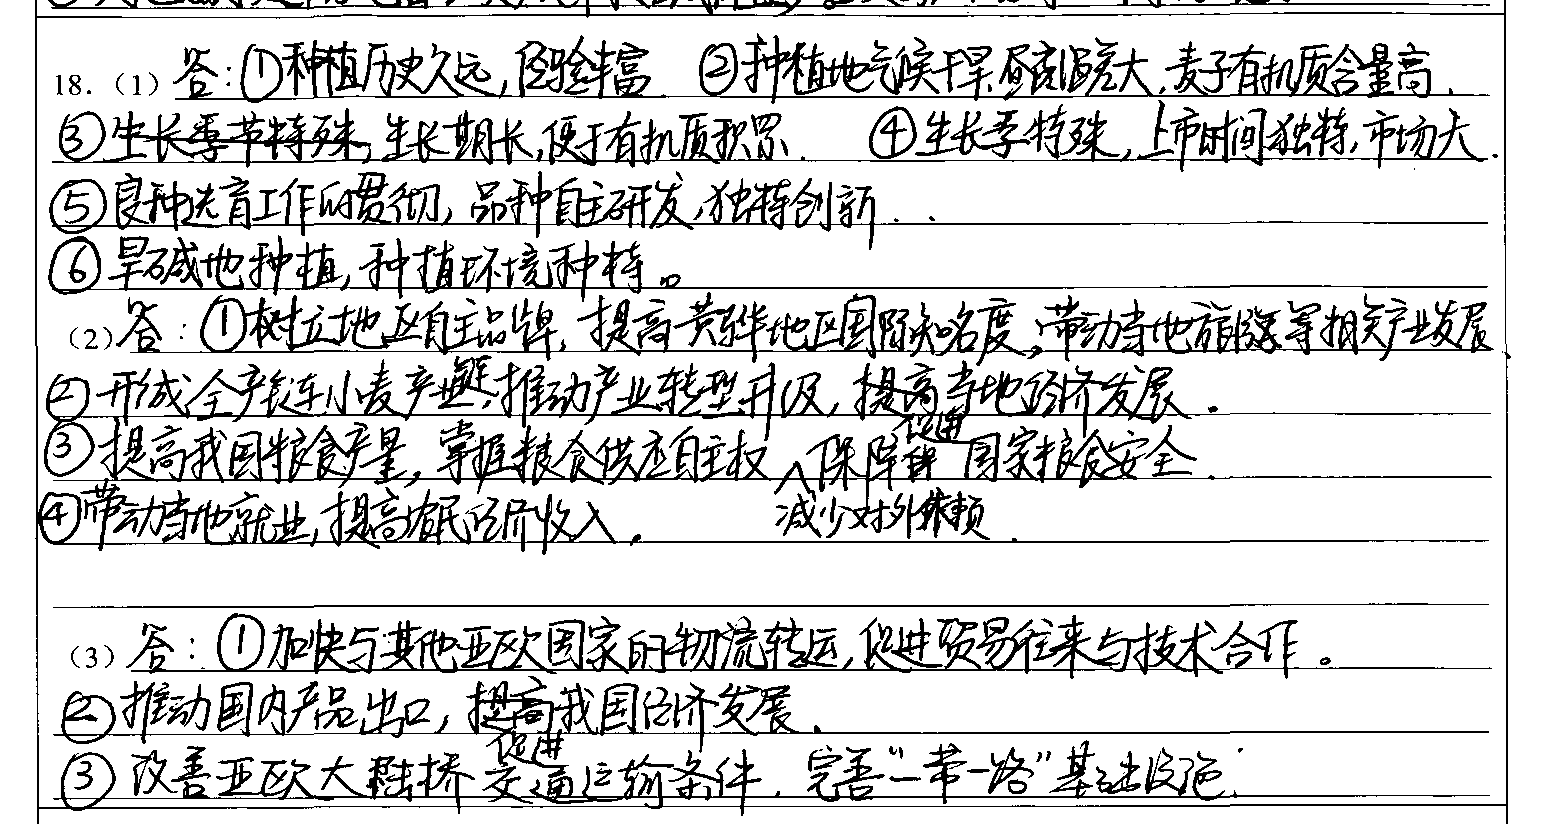 18.（1）答：①种植历史久远，经验丰富 ②种植地气候干旱，昼夜温差大，麦子有机质含量高.
③生长季节特殊，生长期长，便于有机质积累. ④生长季特殊，上市时间独特，市场大.
⑤良种选育工作的贯彻，品种自主研发，独特创新..
⑥旱碱地种植，种植环境种特。
（2）答：①树立地区自主品牌，提高黄骅地区国际知名度，带动当地旅游等相关产业发展、
②形成全产链车小麦产业链，推动产业转型升级，提高当地经济发展.
促进
③提高我国粮食产量，掌握粮食供应自主权 保障 国家粮食安全.
④带动当地就业，提高农民经济收入。 减少对外依赖.
（3）答：①加快与其他亚欧国家的物流转运，促进贸易往来与技术合作。
②推动国内产品出口，提高我国经济发展.
促进
③改善亚欧大陆桥交通运输条件.完善“一带一路”基础设施.